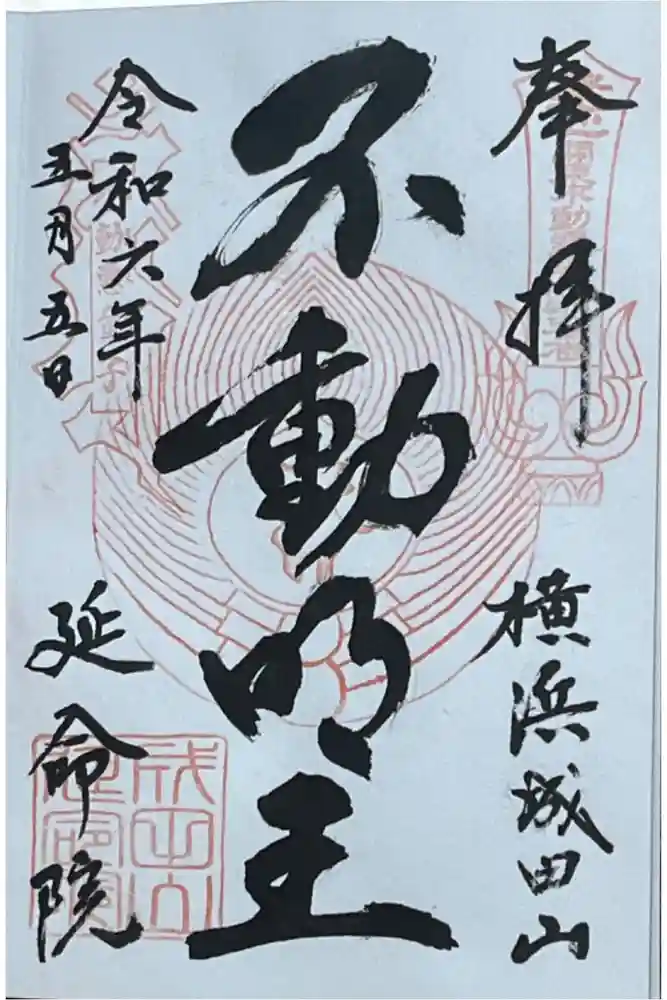 奉拝
横浜成田山
不動明王
令和六年
五月五日
延命院
成田山